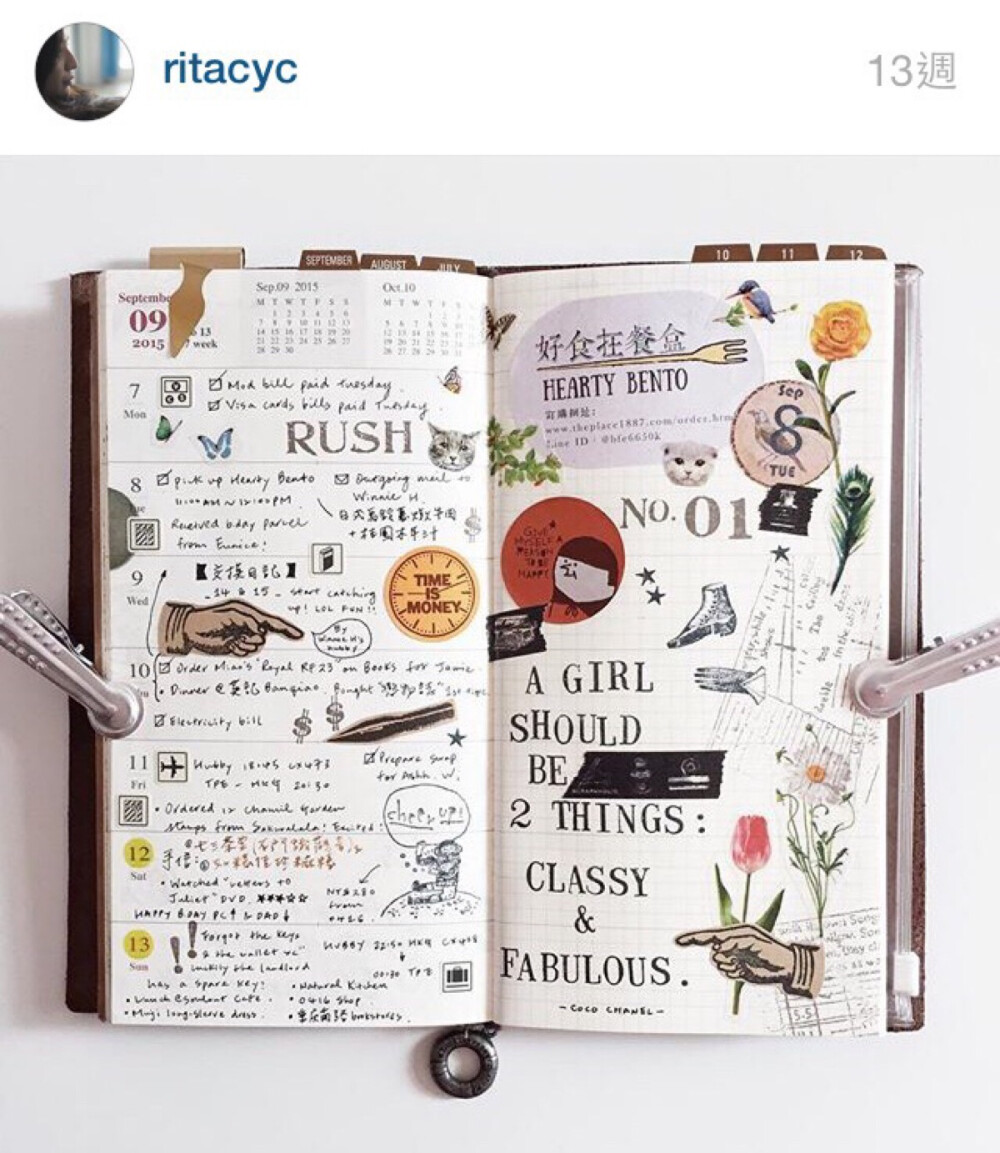 ritacyc
13週
SEPTEMBER
AUGUST
JULY
10
11
12
September
09
2015
13
week
Sep.09 2015
M T W T F S S
1 2 3 4 5 6
7 8 9 10 11 12 13
14 15 16 17 18 19 20
21 22 23 24 25 26 27
28 29 30
Oct.10
M T W T F S
7
Mon
Mod bill paid Tuesday.
Visa cards bills paid Tuesday.
RUSH
8
Tue
pick up Hearty Bento
11:00AM ~ 12:00PM
Outgoing mail to
Winnie H.
Received bday parcel
from Eunice!
9
Wed
【交換日記】
14 & 15 - start catching
up! LOL FUN!!
TIME
IS
MONEY
By
10
Order Mimi's Royal RP23 on Books for Jamie.
Dinner @ Banqiao. Bought
Electricity bill
11
Fri
Hubby 18:45 CX473
TPE - HKG 20:30
Prepare swap
for Ashh. W.
Ordered 12 Chamil Garden
stamps from Sakuralala! Excited!
cheer up!
12
Sat
手信:
Watched "Letters to
Juliet" DVD. ★★★☆☆
HAPPY BDAY PC & DAD
NT$280
from
0416.
13
Sun
Forgot the keys
& the wallet xc
luckily the landlord
has a spare key!
HUBBY 22:50 HKG CX408
00:30 TPE
Lunch @Soulout Cafe.
Muji long-sleeve dress.
Natural Kitchen
0416 shop
重庆南路 bookstores.
好食在餐盒
HEARTY BENTO
訂購網址:
www.theplace1887.com/order.htm
Line ID : @hfe6650k
Sep
8
TUE
No. 01
GIVE
MYSELF A
REASON
TO BE
HAPPY
A GIRL
SHOULD
BE
2 THINGS :
CLASSY
&
FABULOUS .
- COCO CHANEL -
5.5